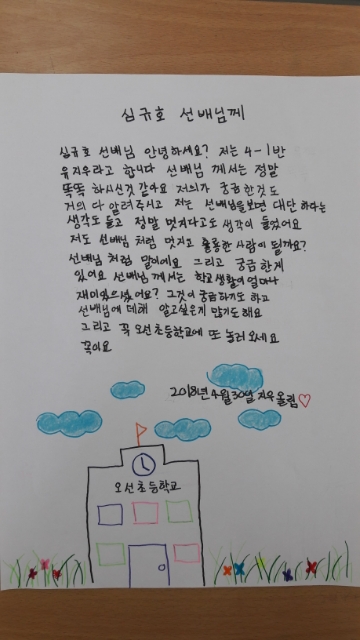 심규호 선배님께
심규호 선배님 안녕하세요? 저는 4-1반
유지우라고 합니다 선배님 께서는 정말
똑똑 하시신것 같아요 저희가 궁금한것도
거의 다 알려주시고 저는 선배님을보면 대단 하다는
생각도 들고 정말 멋지다고도 생각이 들었어요
저도 선배님 처럼 멋지고 훌륭한 사람이 될까요?
선배님 처럼 말이에요 그리고 궁금한게
있어요 선배님 께서는 학교생활이 얼마나
재미있으셨어요? 그것이 궁금하기도 하고
선배님에 대해 알고싶은게 많기도해요
그리고 꼭 오선초등학교에 또 놀러 오세요
꼭이요
2018년 4월 30일 지우올림♡
오선초등학교